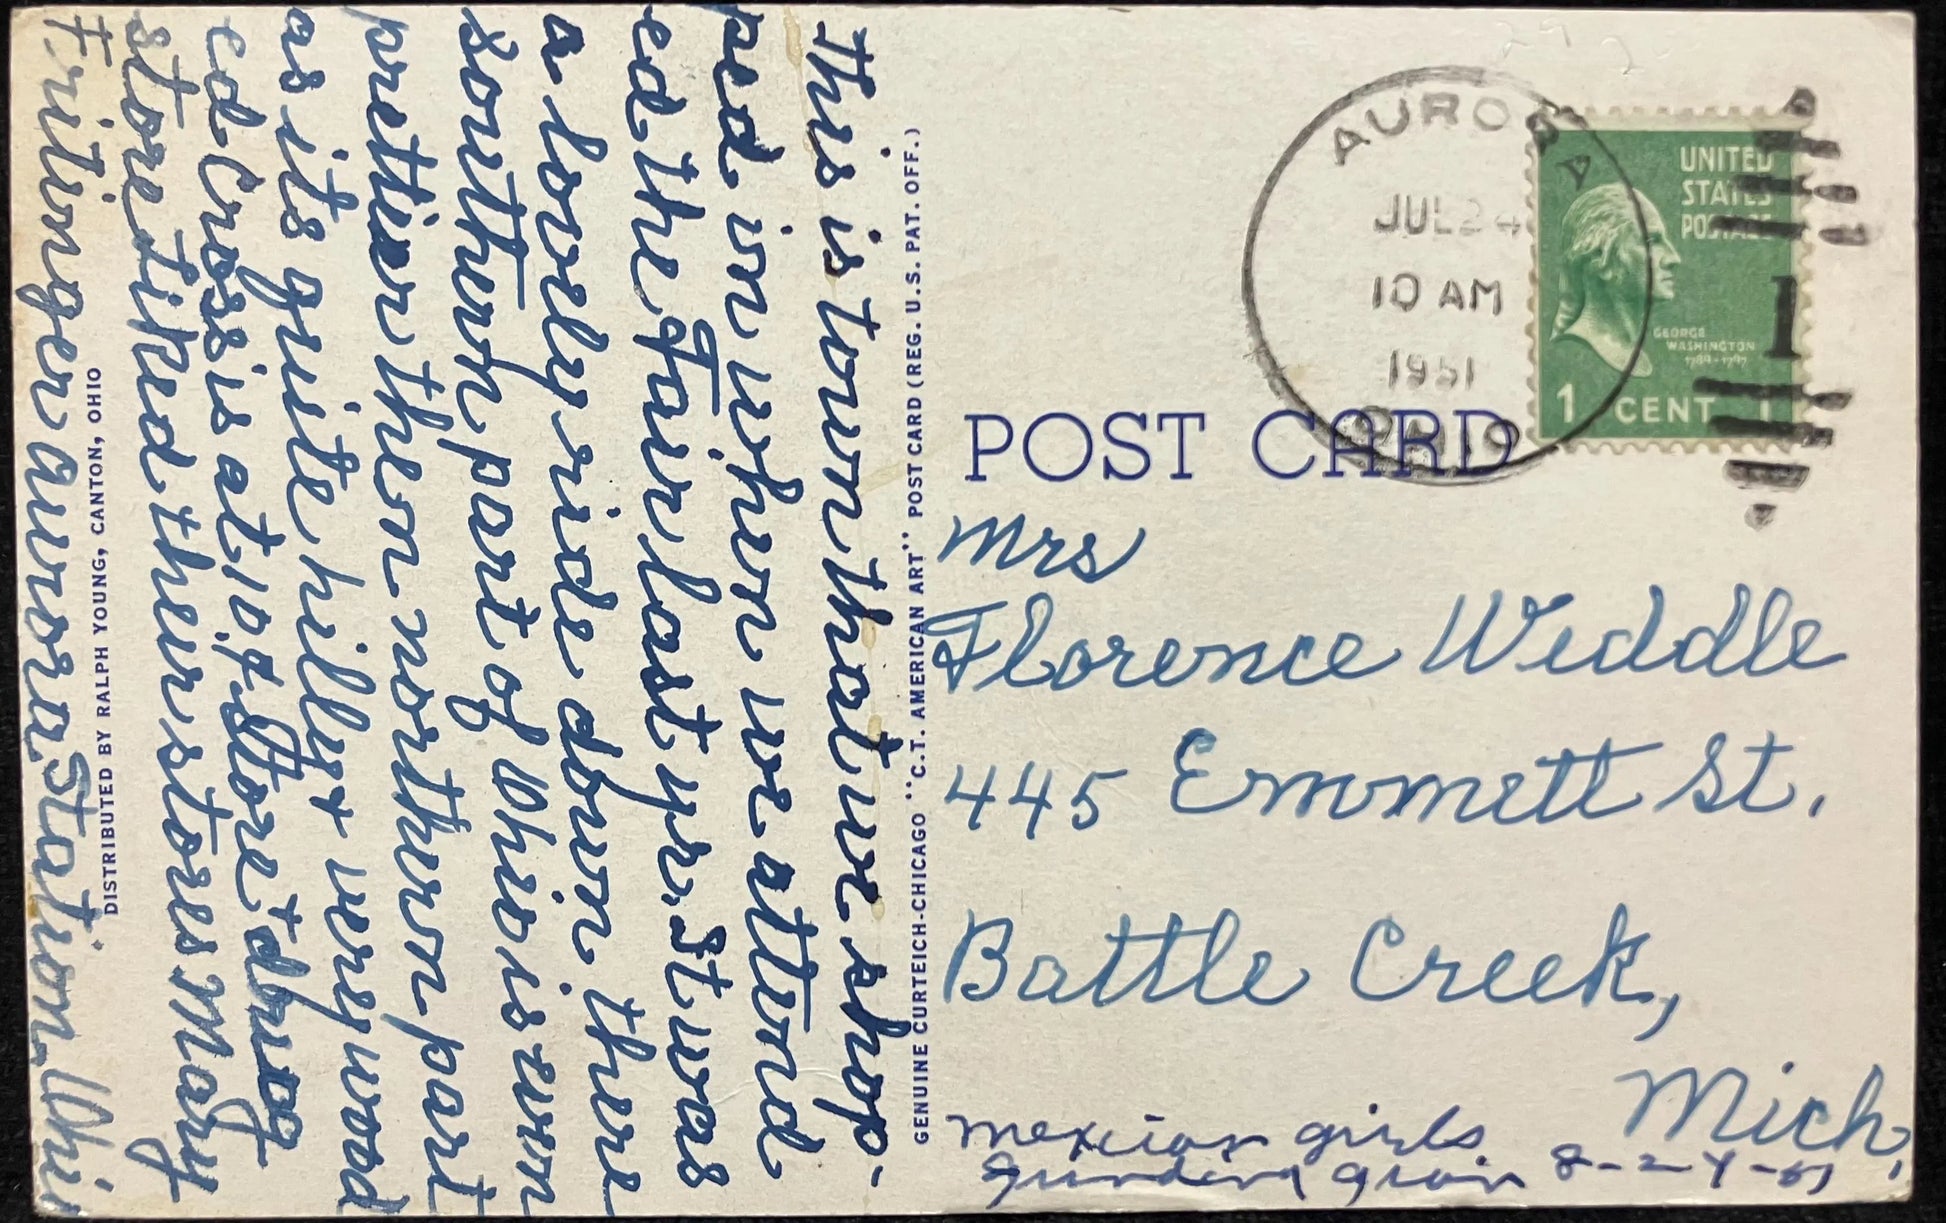 This is town that we shop-
ped in when we attend
ed the Fair last yr. It was
a lovely ride down there
southern part of Ohio is even
prettier then northern part
as its quite hilly & very wood
ed Cross is at 10¢ Store & drug
store liked their stores Mary
Fritinger Aurora Station. Ohio
DISTRIBUTED BY RALPH YOUNG, CANTON, OHIO
GENUINE CURTEICH-CHICAGO "C.T. AMERICAN ART" POST CARD (REG. U.S. PAT. OFF.)
AURORA
JUL 24
10 AM
1951
OHIO
UNITED
STATES
POSTAGE
GEORGE
WASHINGTON
1789-1797
1 CENT 1
POST CARD
Mrs
Florence Weddle
445 Emmett St.
Battle Creek,
Mich.
mexican girls
grinding grain 8-24-51